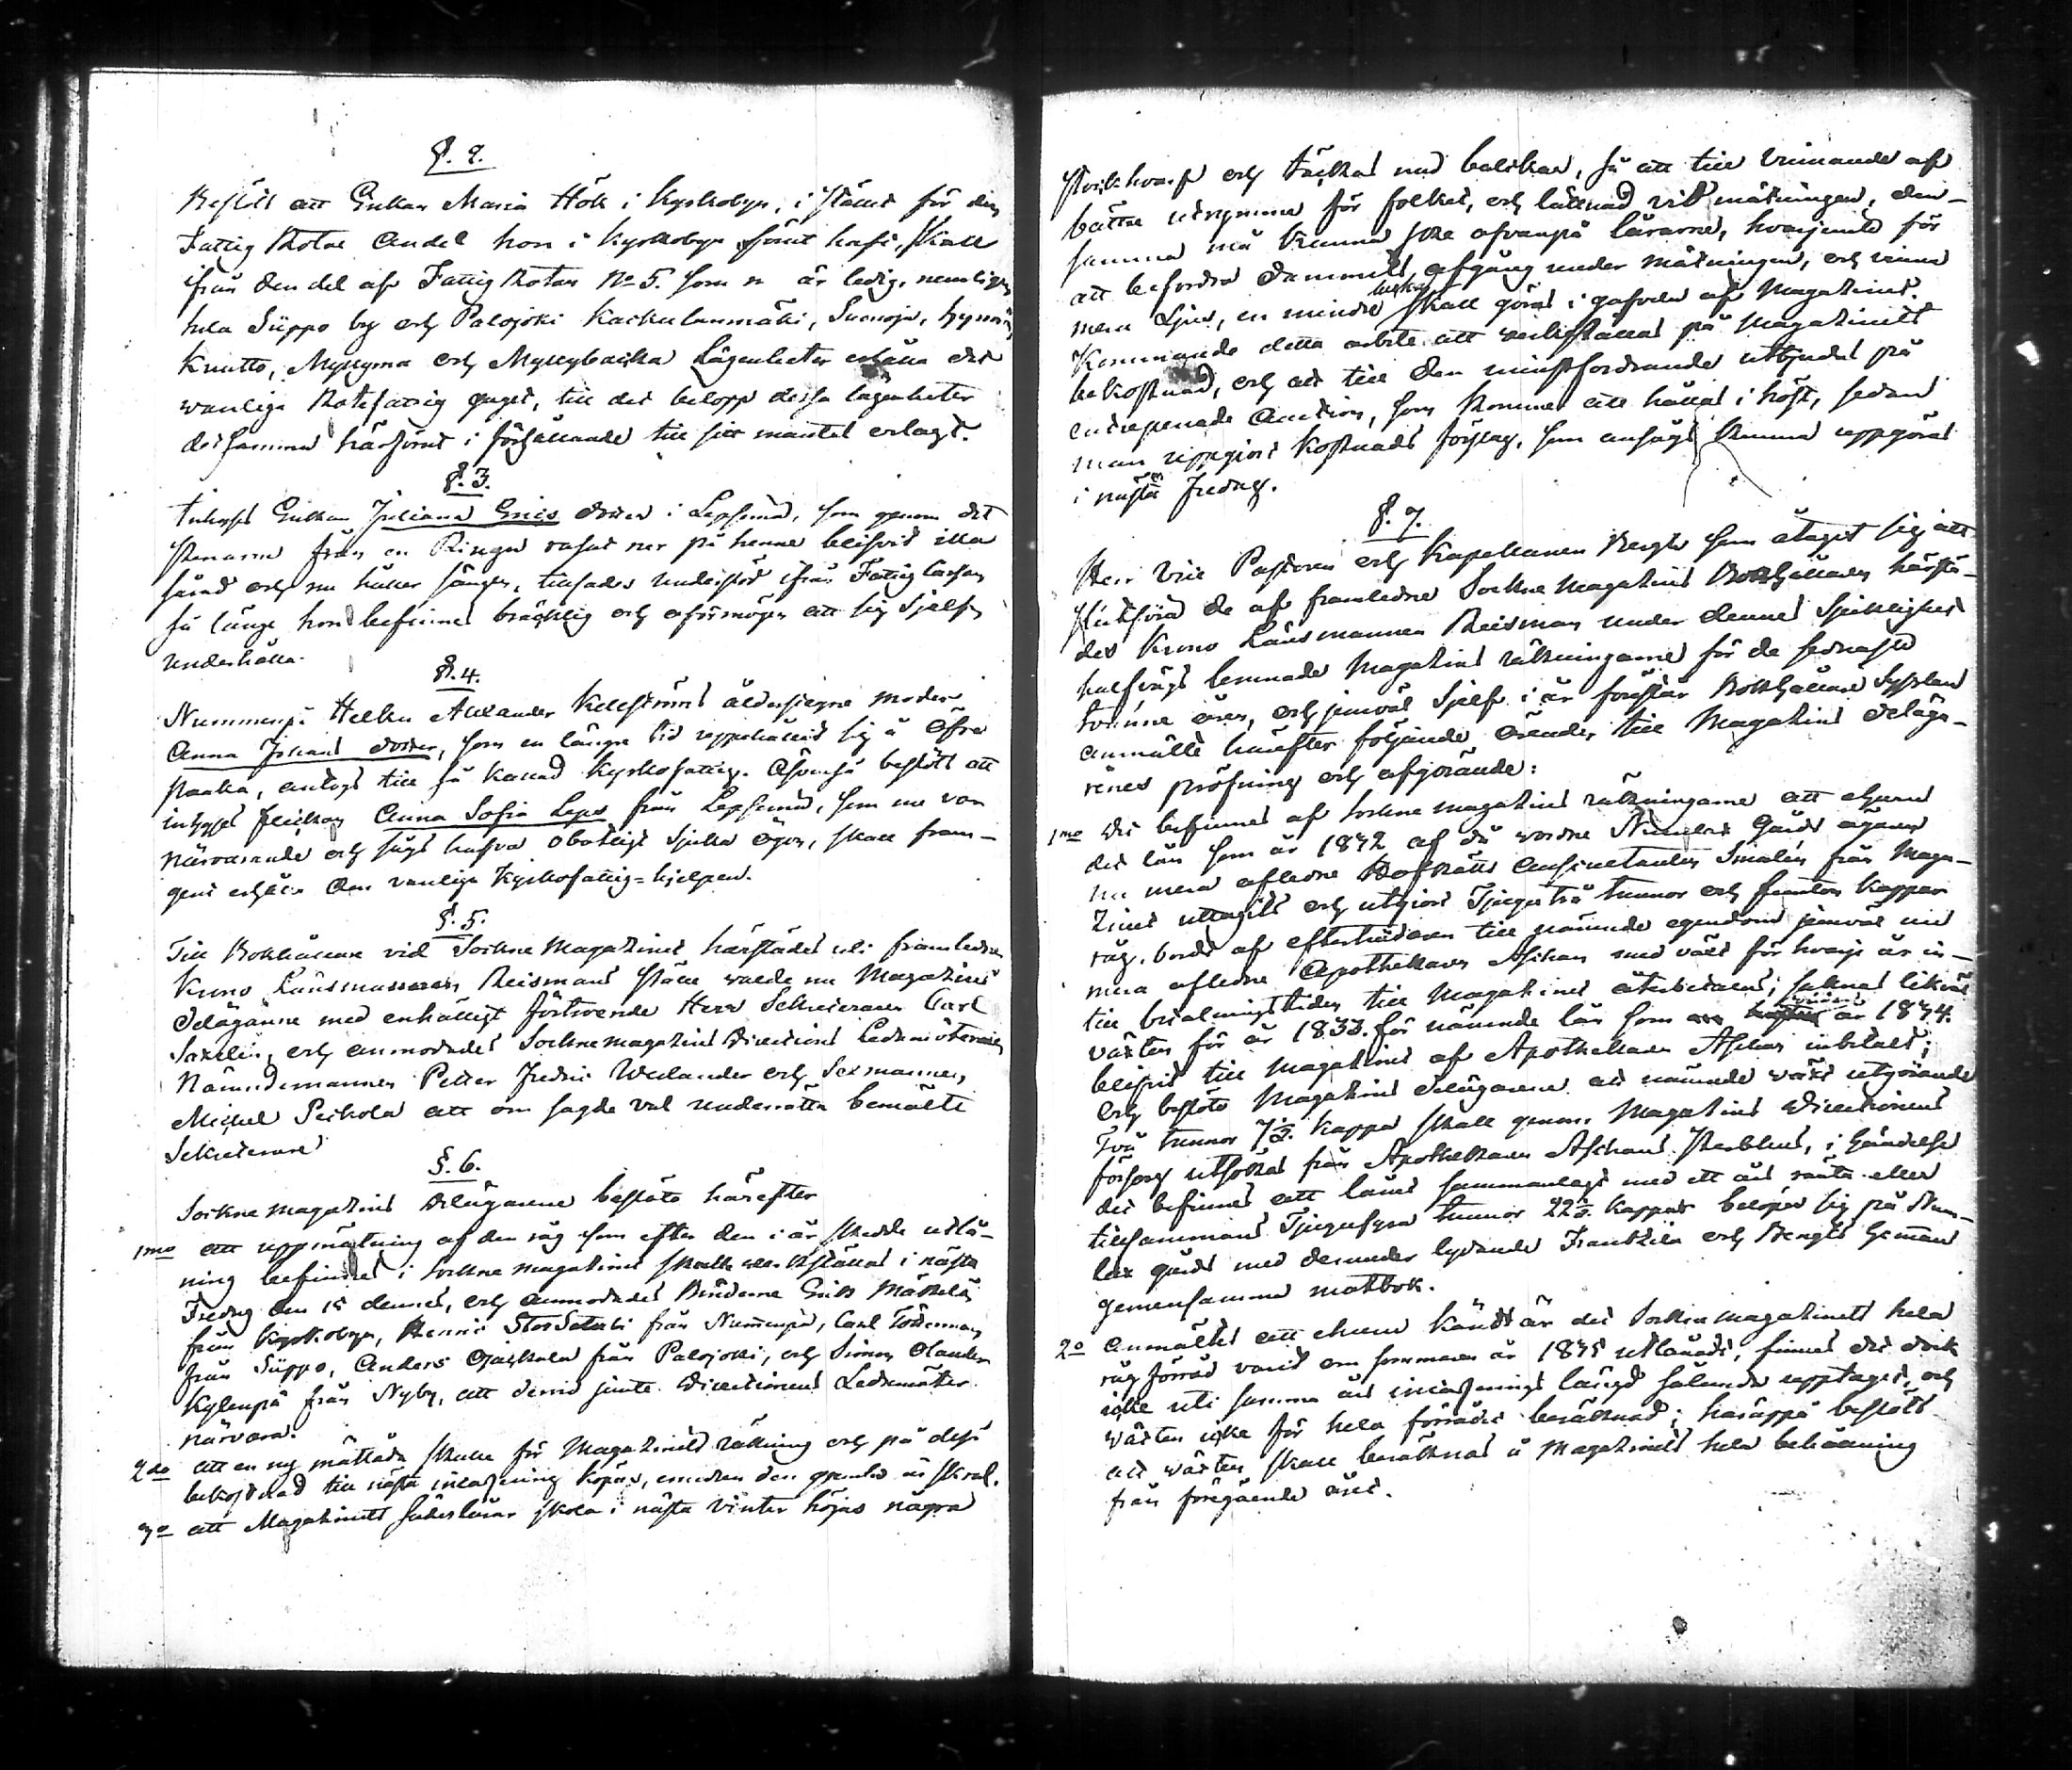 §. 2.
Beslöts att Enkan Maria Höök i Kyrkobyn, i stället för den
Fattig Rotes Andel hon i Kyrkobyn förut haft, skall
ifrån den del af Fattig Rotan No 5. som nu är ledig, nemligen
hela Siippo by och Palojoki Kackulanmäki, Suenoja,
Knutts, Myllymä och Myllybacka Lägenheter erhålla det
wanliga Rotefattig giget, till det belopp dessa lägenheter
detsamma härförut i förhållande till sitt mantal erlagt.
§. 3.
Inhyses Enkan Juliana Erics dotter i Lepsemä, som genom det
stenarne från en Ria ugn rasat ner på henne blifvit illa
sårad och nu håller sängen, tillsades understöd ifrån Fattig Cassan
så länge hon befinnes bräcklig och oförmögen att sig sjelf
underhålla.
§. 4.
Nummenpä Hellu Alexander Kellströms ålderstegne moder
Anna Johans dotter, som en längre tid uppehållit sig å Öfre
Raala, antogs till så kallad Kyrkofattig. Äfvenså beslöts att
inhyses flickan Anna Sofia Leps från Lepsemä, som nu var
närvarande och sågs hafva obotligt sjuka ögon, skall fram-
gent erhålla den vanliga Kyrkofattig-hjelpen.
§. 5.
Till Bokhållare vid Sockne Magazinet härstädes uti framledne
Krono Länsmannen Reismans ställe valde nu Magazinets
Delägarne med enhälligt förtroende Herr Sekreteraren Carl
Saxelin, och anmodades Sockne magazins Directions Ledamöterne
Nämndemannen Petter Fredric Weilander och Sexmannen
Michel Peikola att om sagde val underrätta bemälte
Sekreterare
§. 6.
Sockne magazins Delägarene beslöto härefter
1mo att uppmätning af den råg som efter den i år skedde utlå-
ning befinnes i Sockne magazinet skall verkställas i nästa
Fredag den 15 dennes, och anmodades Bönderne Erik Mäkkelä
från Kyrkobyn, Henric StorSatuli från Nummenpä, Carl Törneman
från Siippo, Anders Ojackala från Palojoki, och Simon Olander
Kylenpä från Nyby, att dervid jemte Directionens Ledamöter
närvara.
2do att en ny mätlåda skulle för Magazinets räkning och på dess
bekostnad till nästa incassering köpas, emedan den gamla är skral.
3o att Magazinets Sädeslårar skola i nästa vinter höjas några
stockhvarf och täckas med balckar, så att till vinnande af
bättre utrymme för folket, och lättnad vid mätningen, den-
samma må kunna ske ofvanpå lårarne, hvarjemte för
att befordra dammets afgång under mätningen, och vinna
mera ljus, en mindre lucka skall göras i gafveln af Magazinet.
Kommande detta arbete att verkställas på Magazinets
bekostnad, och att till den minstfordrande utbjudas på
entreprenade Auction, som kommer att hållas i höst, sedan
man uppgjort Kostnads förslag, som ansågs kunna uppgöras
i nästa fredag.
§. 7.
Herr Vice Pastoren och Kapellanen Bergh som åtaget sig att
slutföra de af framledne Sockne Magazins Bokhållaren härstä-
des Krono Länsmannen Reisman under dennes Sjuklighet
halfvägs lemnade Magazins räkningarne för de sednaste
tvänne åren, och jemväl sjelf i år förestår Bokhållare Sysslan
anmälte härefter följande ärender till Magazins Delägа-
renes pröfning och afgörande:
1mo Det befinnes af Sockne magazins räkningarne att ehuru
det lån som år 1842 af då vordne Gårds egaren
nu mera afledne Hofrätts Auscultanten Smalén från Maga-
zinet uttagits och utgjort Tjugutvå tunnor och femton kappar
råg, vordt af efterträdaren till nämnde egendom jemväl nu
mera afledne Apothekaren Aschan med växt för hvarje år in-
till betalningstiden till Magazinet återbetalt; saknas likväl
växten för år 1833. för nämnde lån som år 1844.
blifvit till Magazinet af Apothekaren Aschan inbetalt;
och beslöto Magazins Delägarene att nämnde växt utgörande
Två tunnor 7½ kappa skall genom Magazins Directionens
försorg utsökas från Apothekaren Aschans Sterbhus, i händelse
det befinnes att lånet sammanlagt med ett års ränta eller
tillsammans Tjugufyra tunnor 22½ kappar belöper sig på
lax gårds med derunder lydande Frankkila och Bengts Hemman
gemensamma motbok.
2o Anmältes att ehuru kändt är det Sockne magazinets hela
rågförråd varit om sommaren år 1845 utlånadt, finnes det dock
icke uti samma års incasserings längd sålunda upptaget, och
växten icke för hela förrådet beräknad; haruppå beslöts
att växten skall beräknas å Magazinets hela behållning
från föregående året.